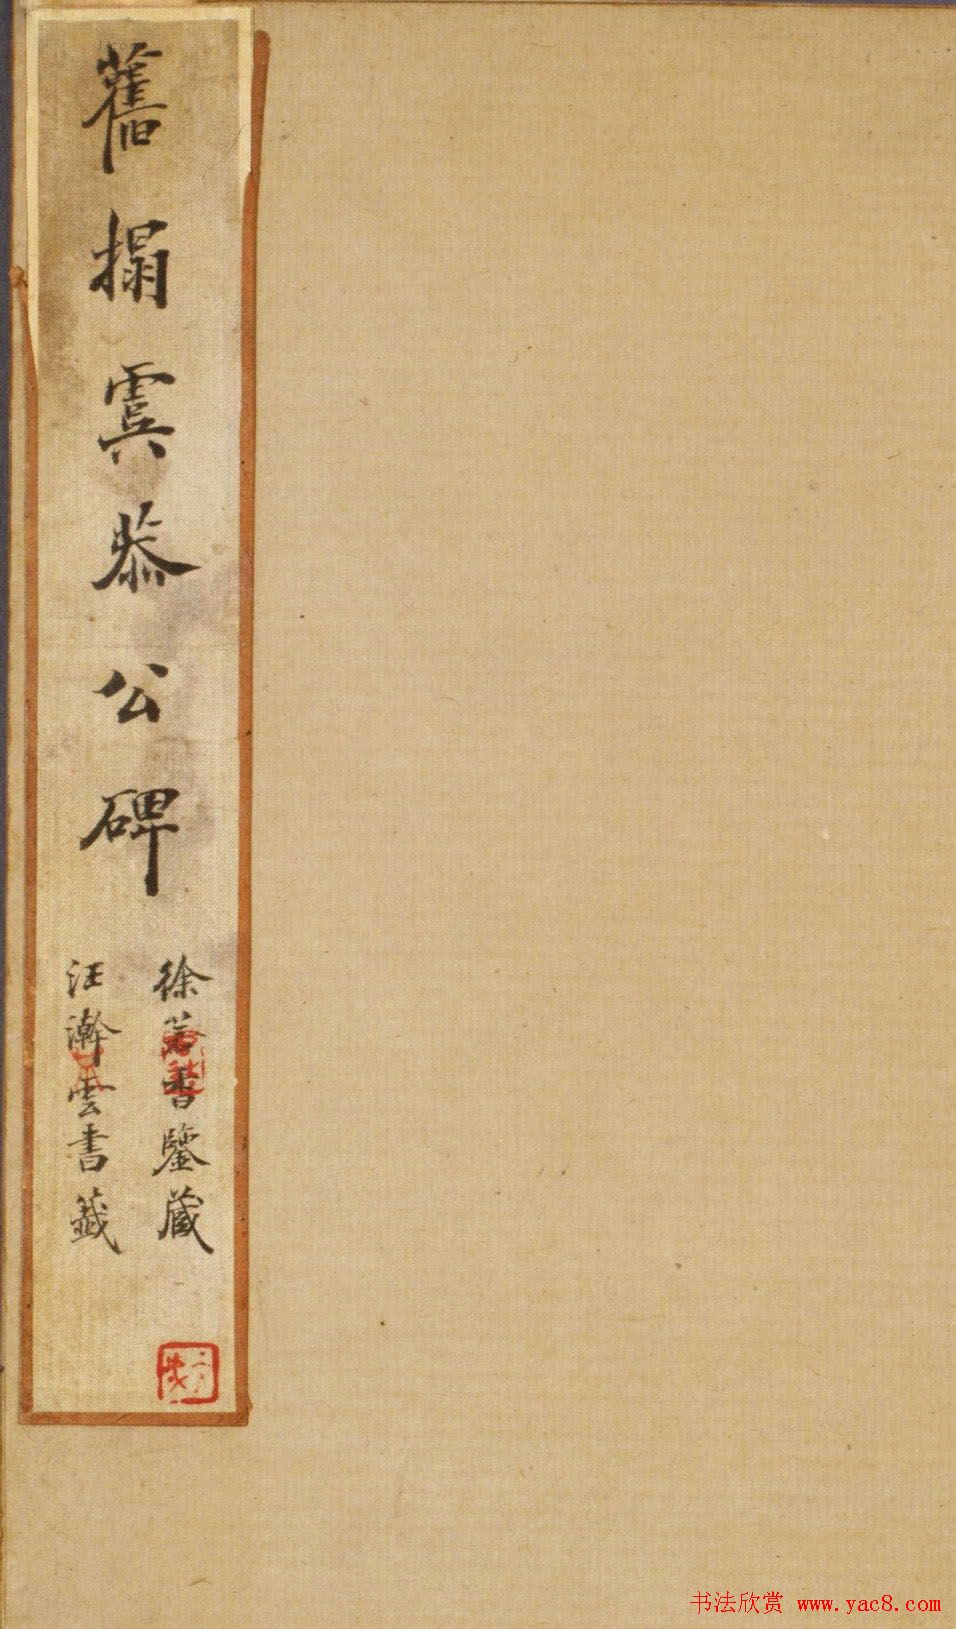 舊搨虞恭公碑
徐若書鑒藏
汪瀚雲書籤
书法欣赏 www.yac8.com